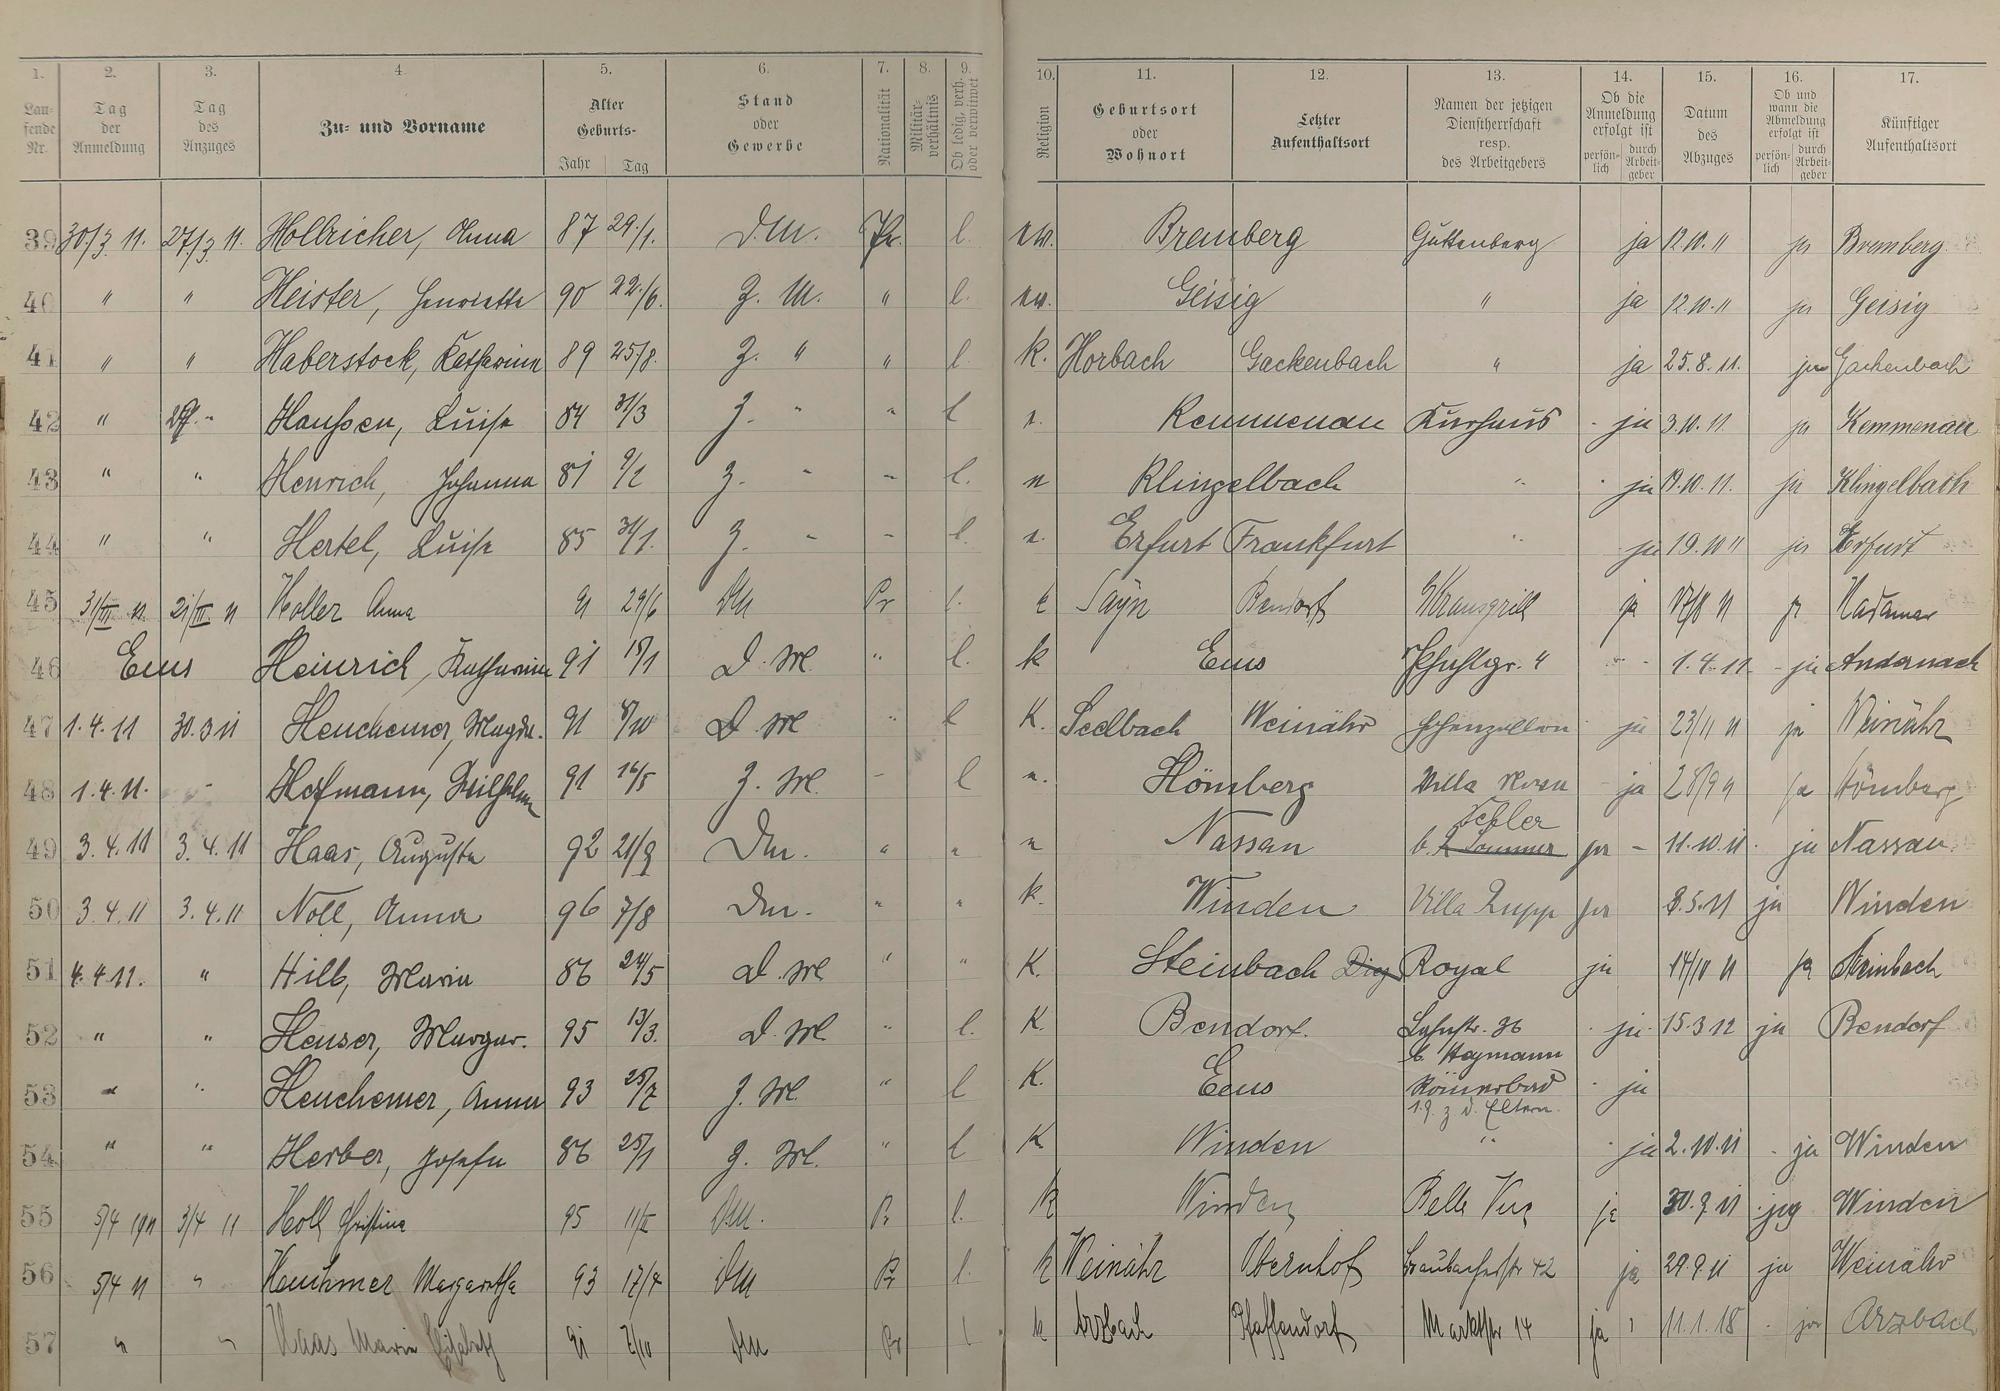 1. 2. 3. 4. 5. 6. 7. 8. 9. 10. 11. 12. 13. 14. 15. 16. 17.
Lau-fende Nr. Tag der Anmeldung Tag des Anzuges Zu- und Vorname Alter Geburts- Jahr Tag Stand oder Gewerbe Nationalität Militär-verhältnis Ob ledig, verh. oder verwitwet Religion Geburtsort oder Wohnort Letzter Aufenthaltsort Namen der jetzigen Dienstherrschaft resp. des Arbeitgebers Ob die Anmeldung erfolgt ist persön-lich durch Arbeit-geber Datum des Abzuges Ob und wann die Abmeldung erfolgt ist persön-lich durch Arbeit-geber Künftiger Aufenthaltsort
39 30/3 11. 27./3. 11. Hollricher, Anna 87 29./1. D.M. Pr. l. ev. Bremberg Guttenberg ja 12.10.11 ja Bremberg
40 " " Heister, Henriette 90 22./6. Z. M. " l. ev. Geisig " ja 12.10.11 ja Geisig
41 " " Haberstock, Katharina 89 25/8. Z. " " l. k. Horbach Gackenbach " ja 25.8.11. ja Gackenbach
42 " " Haußen, Luise 84 31/3 Z. " " l Kemmenau Kurhaus ja 3.10.11. ja Kemmenau
43 " " Henrich, Johanna 81 9/2 Z. " " l. Klingelbach " ja 19.10.11. ja Klingelbach
44 " " Hertel, Luise 85 31/1. Z. " " l. Erfurt Frankfurt " ja 19.10 11 ja Erfurt
45 31/III 11. 21/III 11 Holler Anna 91 29/6 DM Pr l. Sayn Bendorf ja 17/8 11 ja Hadamar
46 Ems Heinrich, Katharina 91 18/1 D. M. " l. k Ems Pfahlgr. 4 1.4.11. ja Andernach
47 1.4.11 30.3 11 Heuchemer, Magda. 91 8/10 D. M " l K. Seelbach Weinähr Hohenzollern ja 23/11 11 ja Weinähr
48 1.4.11. " Hofmann, Wilhelm 91 16/5 Z. M. " l Hömberg Villa ja 28/9 11 ja Hömberg
49 3.4.11 3.4.11 Haas, Auguste 92 21/9 Dm. " " Nassau b. Sommer ja 11.10.11. ja Nassau.
50 3.4.11 3.4.11 Noll, Anna 96 7/8 Dm. " " k. Winden Villa Rupp ja 8.5.11 ja Winden
51 4.4.11. " Hilb, Maria 86 24/5 D. M " " K. Steinbach Diez Royal ja 14/10 11 ja Steinbach
52 " " Heuser, Margar. 95 13/3. D. M " l. K. Bendorf. Lahnstr. 36 b. Heymann ja 15.3 12 ja Bendorf
53 " " Heuchemer, Anna 93 25/7 Z. M. " l K. Ems Römerbad z. d. Eltern. ja
54 " " Herber, Josefa 86 25/1 Z. M. " l K Winden " ja 2.10.11 ja Winden
55 5/4 1911 3/4 11 Holl Christina 95 11/II DM. Pr l. k Winden Belle Vue ja 30.9 11 ja Winden
56 5/4 11 " Heuchmer Margaretha 93 17/4 DM Pr l. k Weinähr Obernhof Braubacherstr 42 ja 29.9 11 ja Weinähr
57 " " Haas Maria Elisabeth 91 7/10 DM Pr l k Arzbach Pfaffendorf Marktstr 14 ja 11.1.18 ja Arzbach